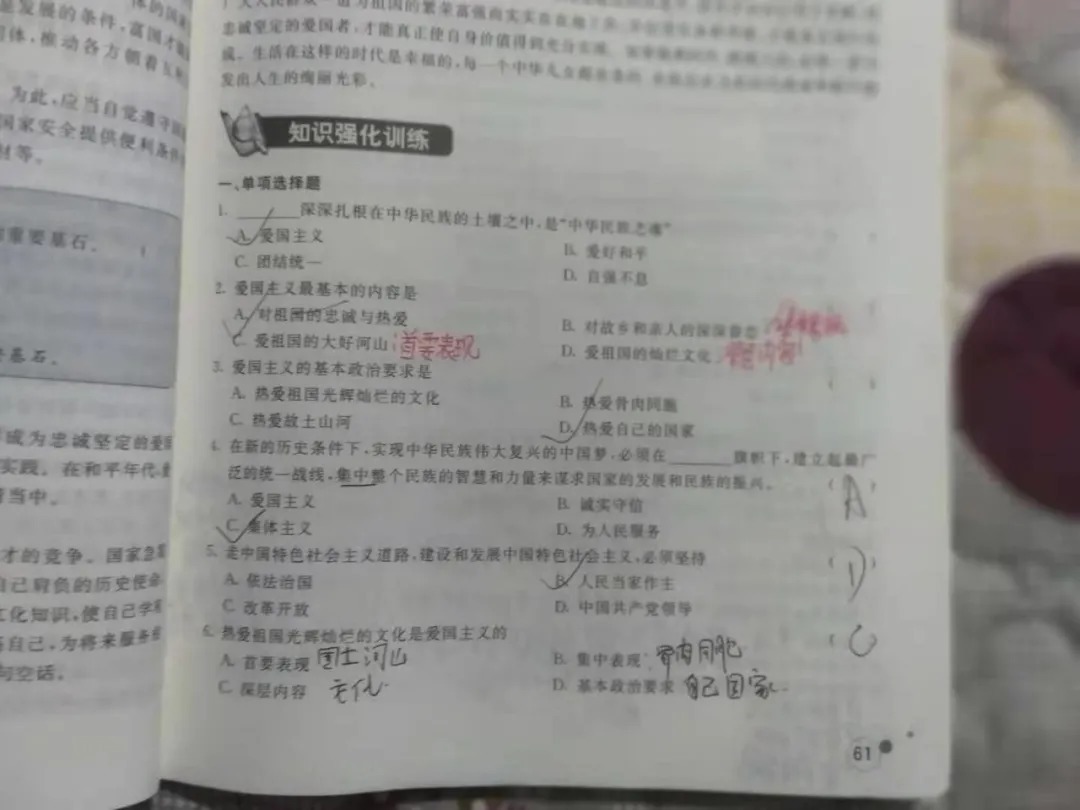 体的国家
是发展的条件,富国才能
同体,推动各方朝着互利
为此,应当自觉遵守
国家安全提供便利条件
材等。
的重要基石。
要基石。
成为忠诚坚定的爱国
实践。在和平年代,
当中。
才的竞争。国家急需
自己肩负的历史使命
文化知识,使自己学
高自己,为将来服务
句空话。
忠诚坚定的爱国者,才能真正使自身价值得到充分实现。
成。生活在这样的时代是幸福的,每一个中华儿女都
发出人生的绚丽光彩。
知识强化训练
一、单项选择题
1. ______深深扎根在中华民族的土壤之中,是“中华民族之魂”
A. 爱国主义
B. 爱好和平
C. 团结统一
D. 自强不息
2. 爱国主义最基本的内容是
A. 对祖国的忠诚与热爱
B. 对故乡和亲人的深深眷恋
C. 爱祖国的大好河山 首要表现
D. 爱祖国的灿烂文化
3. 爱国主义的基本政治要求是
A. 热爱祖国光辉灿烂的文化
B. 热爱骨肉同胞
C. 热爱故土山河
D. 热爱自己的国家
4. 在新的历史条件下,实现中华民族伟大复兴的中国梦,必须在______旗帜下,建立起最广
泛的统一战线,集中整个民族的智慧和力量来谋求国家的发展和民族的振兴。 (A)
A. 爱国主义
B. 诚实守信
C. 集体主义
D. 为人民服务
5. 走中国特色社会主义道路,建设和发展中国特色社会主义,必须坚持 (D)
A. 依法治国
B. 人民当家作主
C. 改革开放
D. 中国共产党领导
6. 热爱祖国光辉灿烂的文化是爱国主义的 (C)
A. 首要表现 国土河山
B. 集中表现 骨肉同胞
C. 深层内容 文化
D. 基本政治要求 自己国家
61